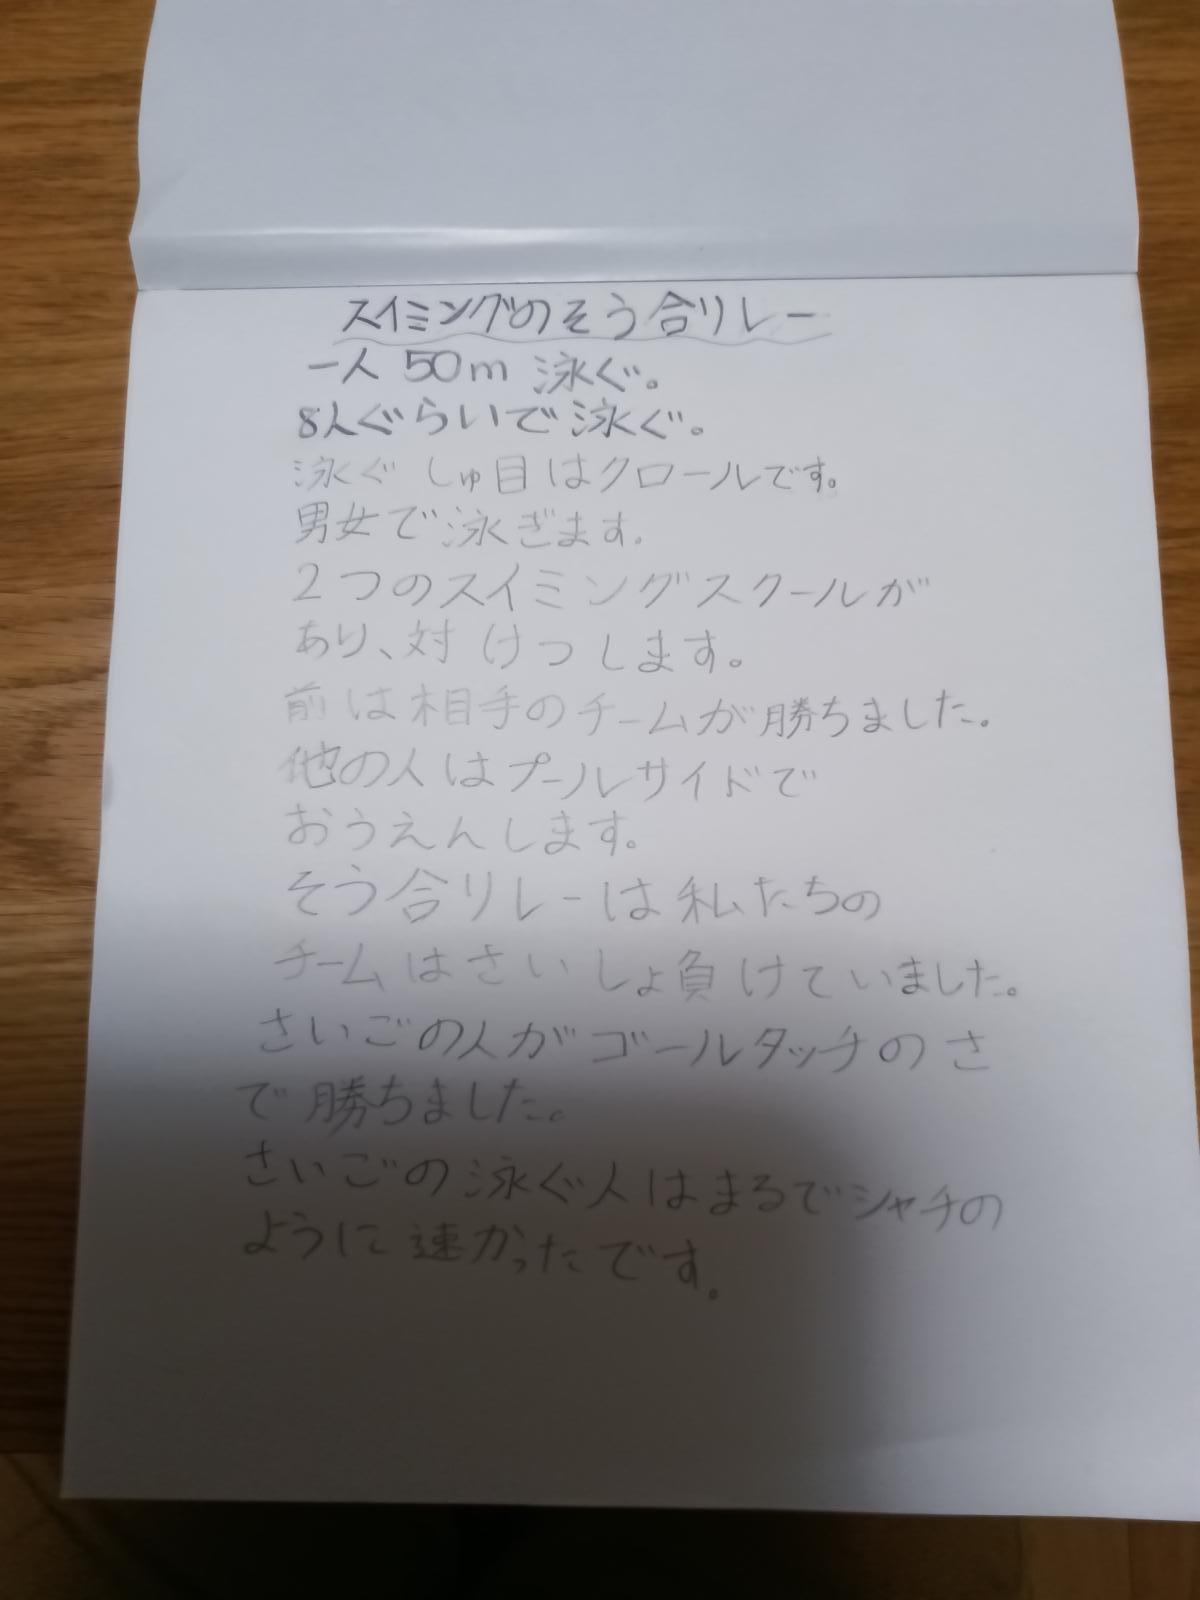 スイミングのそう合リレー
一人 50m 泳ぐ。
8人ぐらいで泳ぐ。
泳ぐしゅ目はクロールです。
男女で泳ぎます。
2つのスイミングスクールが
あり、対けつします。
前は相手のチームが勝ちました。
他の人はプールサイドで
おうえんします。
そう合リレーは私たちの
チームはさいしょ負けていました。
さいごの人がゴールタッチのさ
で勝ちました。
さいごの泳ぐ人はまるでシャチの
ように速かったです。